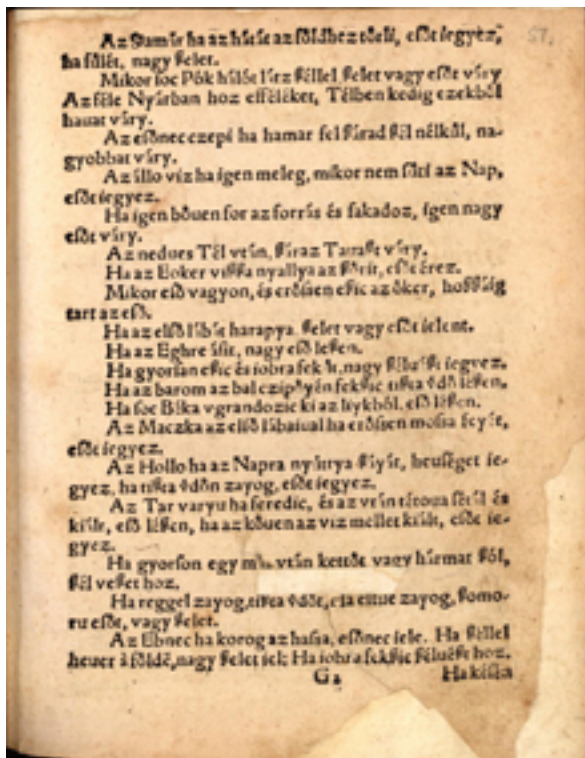 Az Sumár ha az hátát az földhez tôrli, esôt iegyez,
ha fûlét, nagy ßelet.
Mikor soc Pók hálót látz ßéllel, ßelet vagy esôt váry
Az féle Nyárban hoz efféléket, Télben kedig ezekbôl
hauat váry.
Az esônec czepi ha hamar fel ßárad ßél nélkûl, na-
gyobbat váry.
Az állo viz ha igen meleg, mikor nem sûti az Nap,
esôt iegyez.
Ha igen bôuen for az forrás és fakadoz, igen nagy
esôt váry.
Az nedues Tél után, ßáraz Tauaßt váry.
Ha az Eoker vißßa nyallya az ßôrit, esôt érez.
Mikor esô vagyon, és erôssen eßic az ôker, hoßßáig
tart az esô.
Ha az elsô lábát harapya, ßelet vagy esôt ielent.
Ha az Eghre ásit, nagy esô leßen.
Ha gyorsan eßic és iobra fekßic, nagy iegyez.
Ha az barom az bal czipôyén fekßic tißta idô leßen.
Ha soc Bika vgrandozic ki az lyykból, esô leßen.
Az Maczka az elsô lábaiual ha erôssen mossa feyét,
esôt iegyez.
Az Hollo ha az Napra nyáttya ßáyát, heuséget ie-
gyez, ha tißta idôn zayog, esôt iegyez.
Az Tar varyu ha feredic, és az vtán tétoua sétál és
kiált, esô leßen, ha az kôuen az viz mellet kiált, esôt ie-
gyez.
Ha gyorson egy más vtán kettôt vagy hármat ßól,
ßél veßet hoz.
Ha reggel zayog, tißta idôt, estue zayog, ßomo-
ru esôt, vagy ßelet.
Az Ebnec ha korog az hassa, esônec iele. Ha ßéllel
heuer à fôldô, nagy ßelet iel: Ha iobra fekßic hoz.
G2 Ha
57.